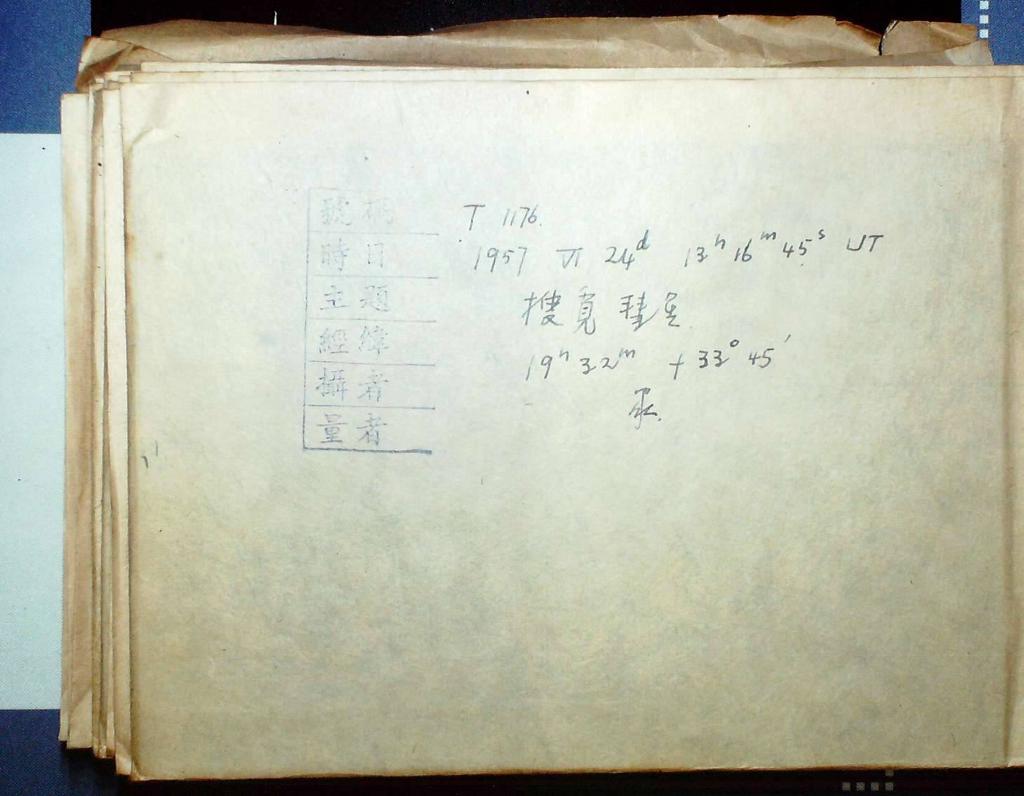 號碼 T 1176.
時日 1957 VI 24ᵈ 13ʰ 16ᵐ 45ˢ UT
主題 搜覓彗星
經緯 19ʰ 32ᵐ +33° 45′
攝者
量者